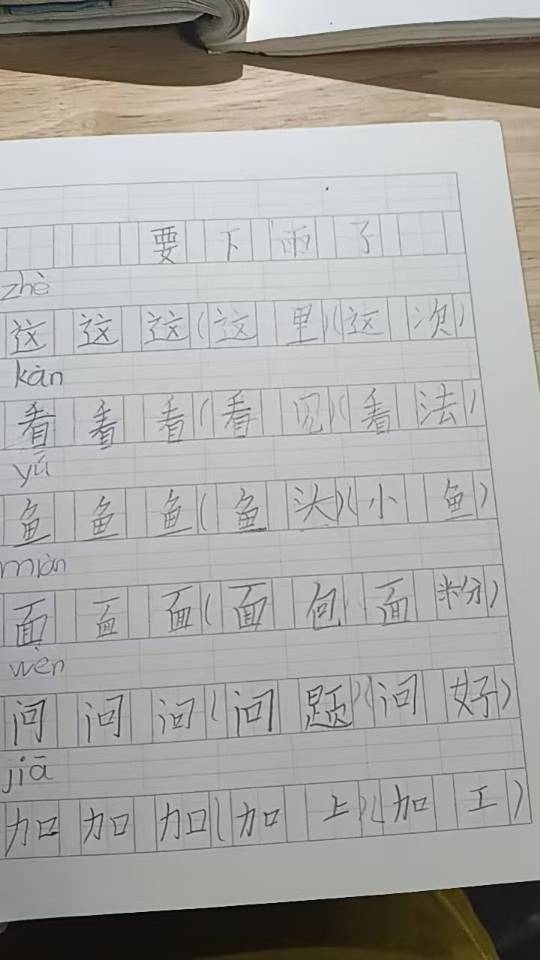 要下雨了
zhè
这这这(这里)(这次)
kàn
看看看(看见)(看法)
yú
鱼鱼鱼(鱼头)(小鱼)
miàn
面面面(面包 面粉)
wèn
问问问(问题)(问好)
jiā
加加加(加上)(加工)